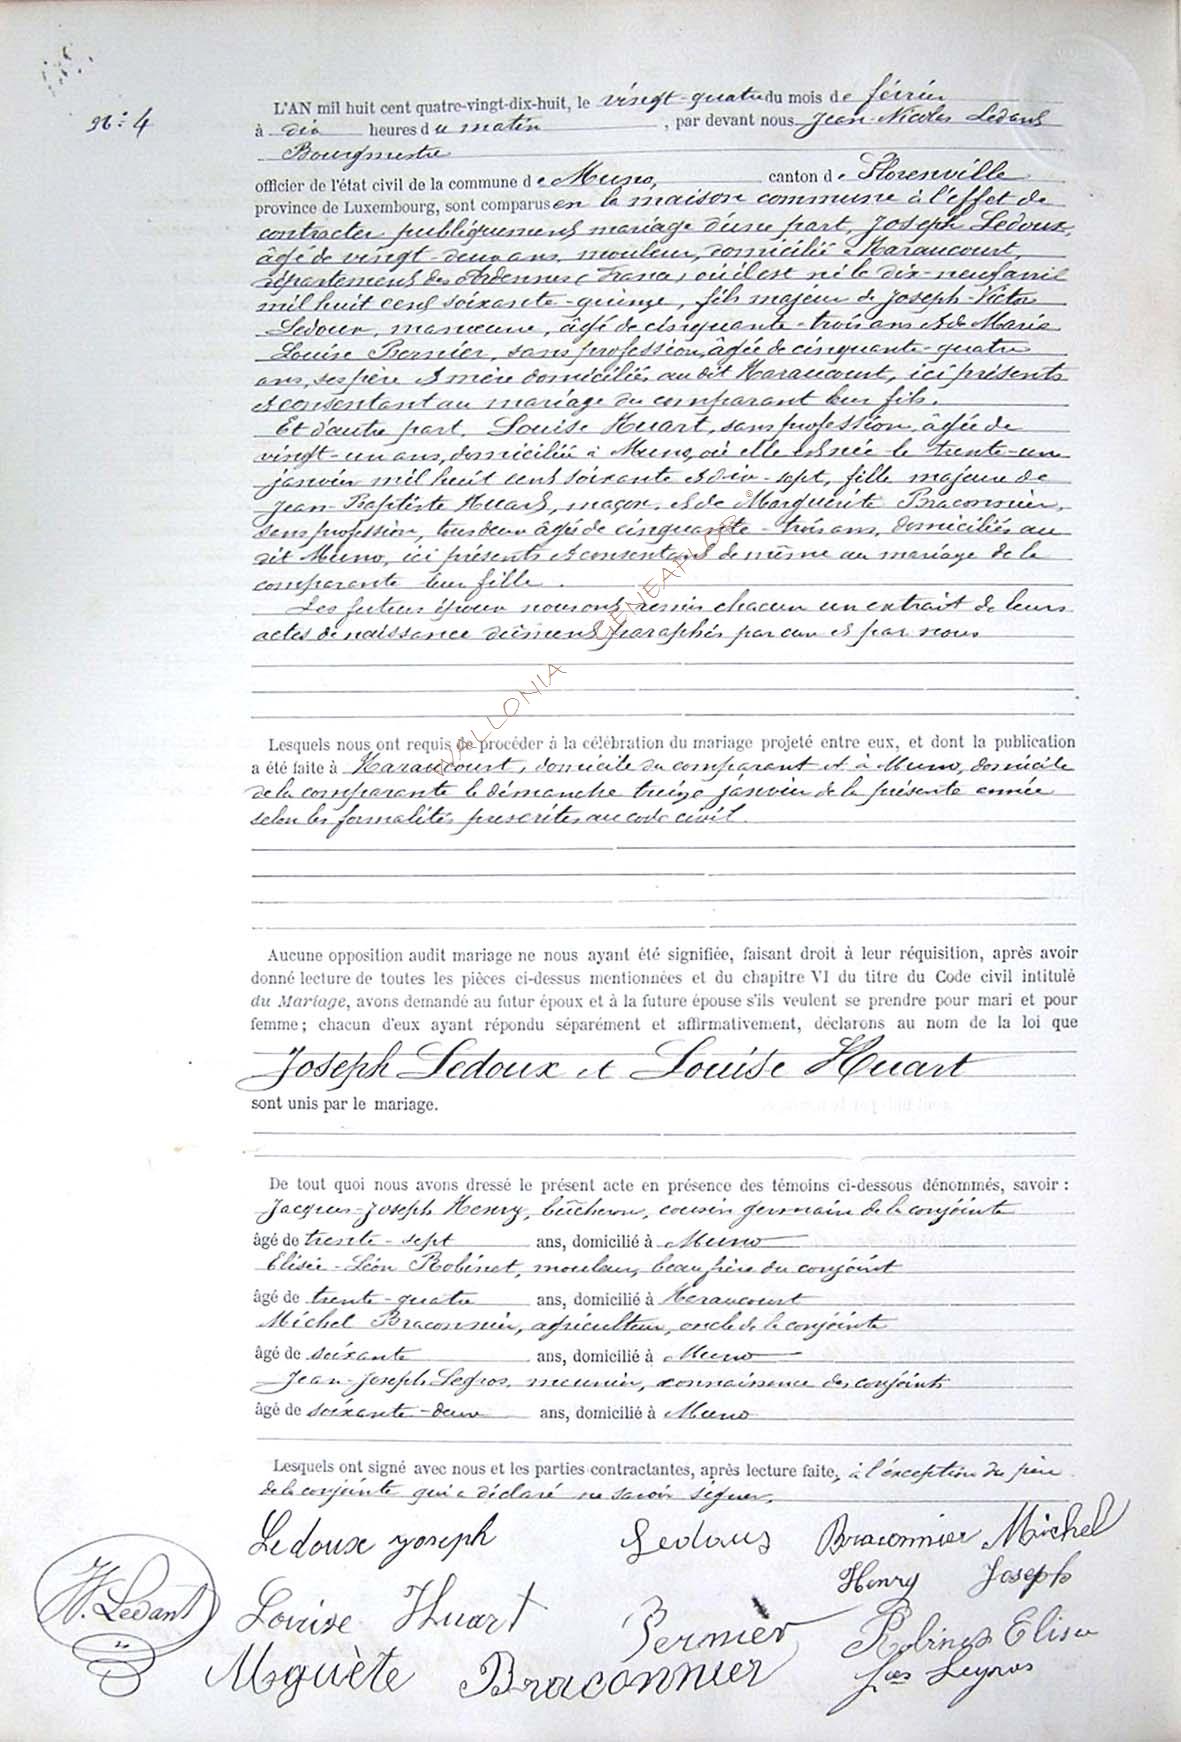 N° 4
L'AN mil huit cent quatre-vingt-dix-huit, le vingt-quatre du mois de février
à dix heures du matin, par devant nous Jean-Nicolas Ledant
Bourgmestre
officier de l'état civil de la commune de Muno, canton de Florenville
province de Luxembourg, sont comparus en la maison commune à l'effet de
contracter publiquement mariage d'une part, Joseph Ledoux,
âgé de vingt-deux ans, mouleur, domicilié à Haraucourt,
département des Ardennes (France) où il est né le dix-neuf avril
mil huit cent soixante-quinze, fils majeur de Joseph-Victor
Ledoux, manœuvre, âgé de cinquante-trois ans et de Marie
Louise Bernier, sans profession, âgée de cinquante-quatre
ans, ses père et mère domiciliés au dit Haraucourt, ici présents
et consentant au mariage du comparant leur fils.
Et d'autre part, Louise Huart, sans profession, âgée de
vingt-un ans, domiciliée à Muno, où elle est née le trente-un
janvier mil huit cent soixante et dix-sept, fille majeure de
Jean-Baptiste Huart, maçon, et de Marguerite Braconnier,
sans profession, tous deux âgés de cinquante-trois ans, domiciliés au
dit Muno, ici présents et consentant de même au mariage de la
comparante leur fille.
Les futurs époux nous ont remis chacun un extrait de leurs
actes de naissance dûment paraphés par eux et par nous
WALLONIA GENEAPLOS ©
Lesquels nous ont requis de procéder à la célébration du mariage projeté entre eux, et dont la publication
a été faite à Haraucourt, domicile du comparant et à Muno, domicile
de la comparante le démanche treize janvier de la présente année
selon les formalités prescrites au code civil.
Aucune opposition audit mariage ne nous ayant été signifiée, faisant droit à leur réquisition, après avoir
donné lecture de toutes les pièces ci-dessus mentionnées et du chapitre VI du titre du Code civil intitulé
du Mariage, avons demandé au futur époux et à la future épouse s'ils veulent se prendre pour mari et pour
femme ; chacun d'eux ayant répondu séparément et affirmativement, déclarons au nom de la loi que
Joseph Ledoux et Louise Huart
sont unis par le mariage.
De tout quoi nous avons dressé le présent acte en présence des témoins ci-dessous dénommés, savoir :
Jacques-Joseph Henry, bûcheron, cousin germain de la conjointe
âgé de trente-sept ans, domicilié à Muno
Elisée-Léon Robinet, mouleur, beau frère du conjoint
âgé de trente-quatre ans, domicilié à Haraucourt
Michel Braconnier, agriculteur, oncle de la conjointe
âgé de soixante ans, domicilié à Muno
Jean-Joseph Legros, meunier, connaissance des conjoints
âgé de soixante-deux ans, domicilié à Muno
Lesquels ont signé avec nous et les parties contractantes, après lecture faite, à l'exception du père
de la conjointe qui a déclaré ne savoir signer.
Ledoux joseph Ledoux Braconnier Michel
Henry Joseph
N. Ledant Louise Huart Bernier Robinet Elisée
Mguète Braconnier Jos Legros